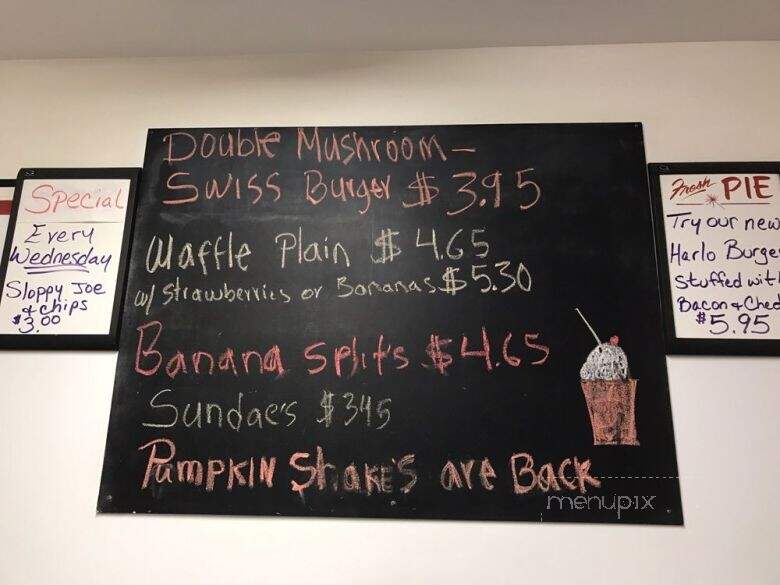 Special
Every
Wednesday
Sloppy Joe
& chips
$3.00
Double Mushroom-
Swiss Burger $3.95
Waffle Plain $4.65
w/ Strawberries or Bananas $5.30
Banana splits $4.65
Sundae's $345
Pumpkin Shake's are Back
menupix
Fresh PIE
Try our new
Harlo Burge
Stuffed wit
Bacon & Ched
$5.95